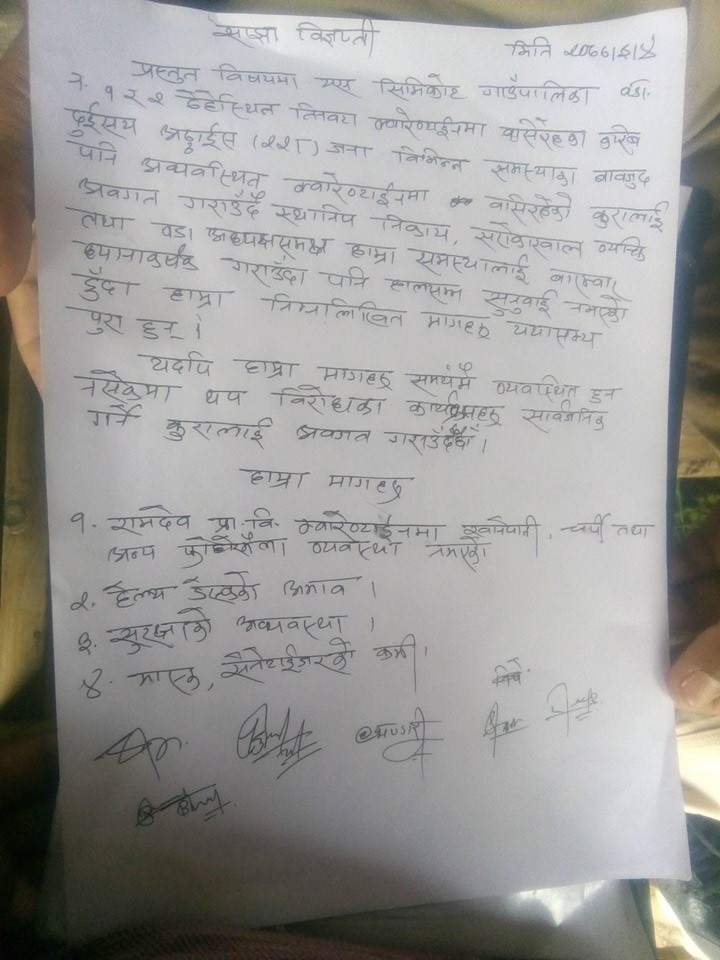 साझा विज्ञप्ती
मिति २०७७।३।४
प्रस्तुत विषयमा यस सिमिकोट गाउँपालिका वडा
नं. १ र २ हेप्लेस्थित क्वारेण्टाईनमा बसिरहेका करिब
दुईसय अठ्ठाईस (२२८) जना विभिन्न समस्याका बावजुद
पनि अव्यवस्थित क्वारेण्टाईनमा बसिरहेको कुरालाई
अवगत गराउँदै स्थानिय निकाय, सरोकारवाला व्यक्ति
तथा वडा अध्यक्षसमक्ष हाम्रा समस्यालाई बारम्बार
ध्यानाकर्षक गराउँदा पनि हालसम्म सुनुवाई नभएको
हुँदा हाम्रा निम्नलिखित मागहरु यथासम्य
पुरा हुन् ।
यदपि हाम्रा मागहरु समयमै व्यवस्थित हुन
नसकेमा थप विरोधका कार्यक्रमहरु सार्वजनिक
गर्ने कुरालाई अवगत गराउँदछौँ ।
हाम्रा मागहरु
१. रामदेव प्रा.वि. क्वारेण्टाईनमा खानेपानी, चर्पी तथा
अन्य फोहोरमैला व्यवस्था नभएको
२. हेल्थ डेस्कको अभाव ।
३. सुरक्षाको अव्यवस्था ।
४. मास्क, सेनेटाईजरको कमी।